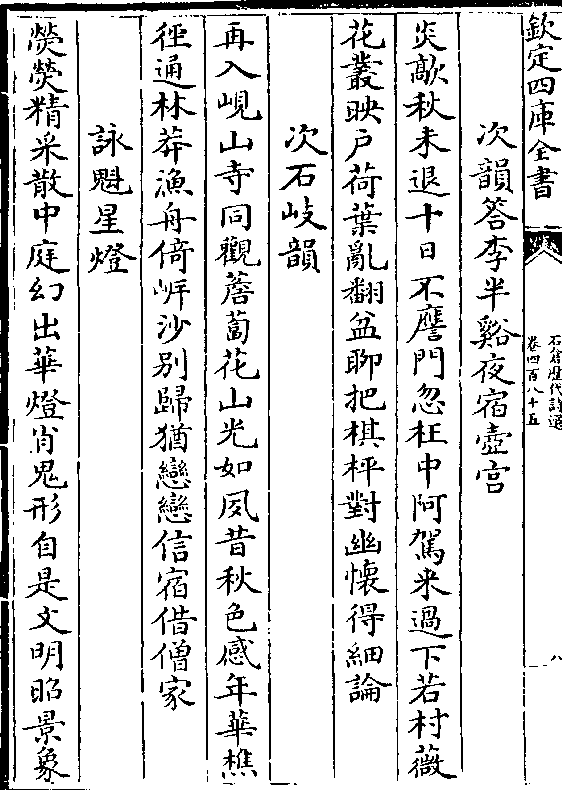 欽定四庫全書
石倉歷代詩選
卷四百八十五
八
次韻答李半谿夜宿壺宫
炎歊秋未退十日不應門忽枉中阿駕来過下若村薇
花叢映戸荷葉亂翻盆聊把棋枰對幽懷得細論
次石岐韻
再入峴山寺同觀薝蔔花山光如夙昔秋色感年華樵
徑通林莽漁舟倚岸沙别歸猶戀戀信宿借僧家
詠魁星燈
熒熒精采散中庭幻出華燈肖鬼形自是文明昭景象